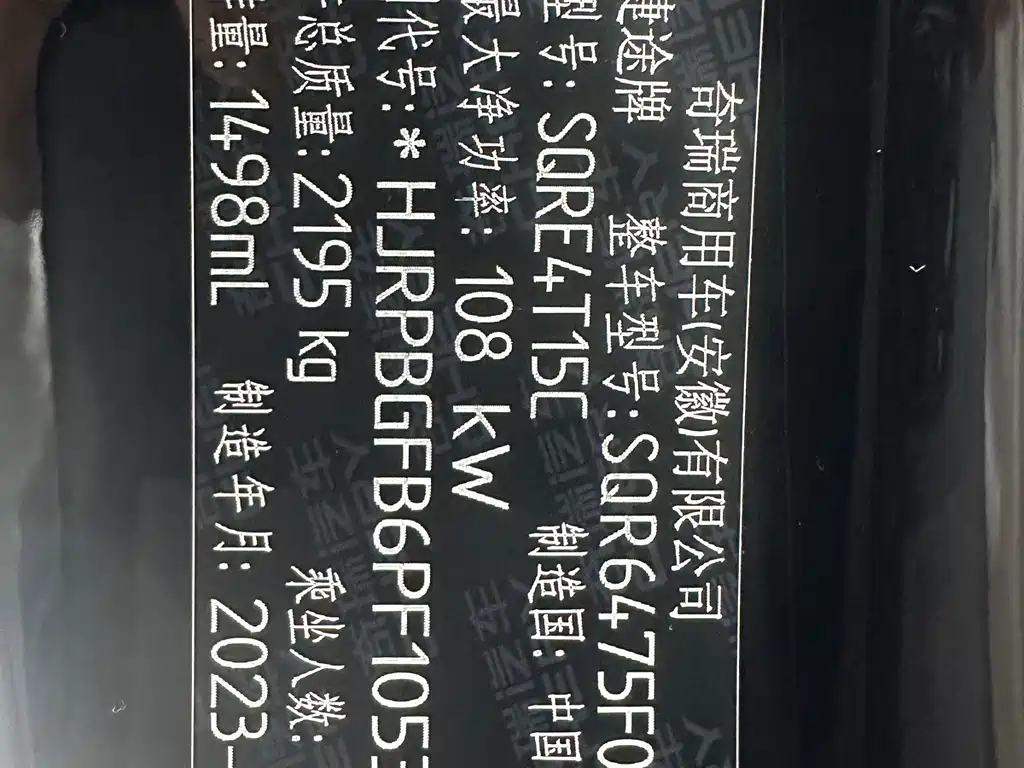 奇瑞商用车(安徽)有限公司
捷途牌 整车型号:SQR6475F0
型号: SQRE4T15C 制造国: 中国
最大净功率: 108 kW
代号: * HJRPBGFB6PF105
总质量: 2195 kg 乘坐人数:
量: 1498mL 制造年月: 2023-